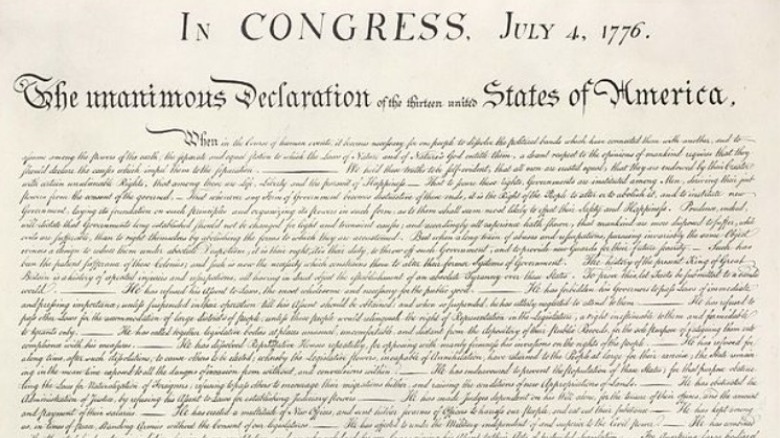 In CONGRESS, July 4, 1776.
The unanimous Declaration of the thirteen united States of America,
When in the Course of human events, it becomes necessary for one people to dissolve the political bands which have connected them with another, and to
assume among the powers of the earth, the separate and equal station to which the Laws of Nature and of Nature's God entitle them, a decent respect to the opinions of mankind requires that they
should declare the causes which impel them to the separation. ——— We hold these truths to be self-evident, that all men are created equal, that they are endowed by their Creator
with certain unalienable Rights, that among these are Life, Liberty and the pursuit of Happiness.— That to secure these rights, Governments are instituted among Men, deriving their just
powers from the consent of the governed, — That whenever any Form of Government becomes destructive of these ends, it is the Right of the People to alter or to abolish it, and to institute new
Government, laying its foundation on such principles and organizing its powers in such form, as to them shall seem most likely to effect their Safety and Happiness. Prudence, indeed,
will dictate that Governments long established should not be changed for light and transient causes; and accordingly all experience hath shewn, that mankind are more disposed to suffer, while
evils are sufferable, than to right themselves by abolishing the forms to which they are accustomed. But when a long train of abuses and usurpations, pursuing invariably the same Object
evinces a design to reduce them under absolute Despotism, it is their right, it is their duty, to throw off such Government, and to provide new Guards for their future security. — Such has
been the patient sufferance of these Colonies; and such is now the necessity which constrains them to alter their former Systems of Government. The history of the present King of Great
Britain is a history of repeated injuries and usurpations, all having in direct object the establishment of an absolute Tyranny over these States. To prove this, let Facts be submitted to a candid
world. ——— He has refused his Assent to Laws, the most wholesome and necessary for the public good. ——— He has forbidden his Governors to pass Laws of immediate
and pressing importance, unless suspended in their operation till his Assent should be obtained; and when so suspended, he has utterly neglected to attend to them. ——— He has refused to
pass other Laws for the accommodation of large districts of people, unless those people would relinquish the right of Representation in the Legislature, a right inestimable to them and formidable
to tyrants only. ——— He has called together legislative bodies at places unusual, uncomfortable, and distant from the depository of their Public Records, for the sole purpose of fatiguing them into
compliance with his measures. ——— He has dissolved Representative Houses repeatedly, for opposing with manly firmness his invasions on the rights of the people. ——— He has refused for
a long time, after such dissolutions, to cause others to be elected; whereby the Legislative powers, incapable of Annihilation, have returned to the People at large for their exercise; the State remain-
ing in the mean time exposed to all the dangers of invasion from without, and convulsions within. ——— He has endeavoured to prevent the population of these States; for that purpose obstruc-
ting the Laws for Naturalization of Foreigners; refusing to pass others to encourage their migrations hither, and raising the conditions of new Appropriations of Lands. ——— He has obstructed the
Administration of Justice, by refusing his Assent to Laws for establishing Judiciary powers. ——— He has made Judges dependent on his Will alone, for the tenure of their offices, and the amount
and payment of their salaries. ——— He has erected a multitude of New Offices, and sent hither swarms of Officers to harrass our people, and eat out their substance. ——— He has kept among
us, in times of peace, Standing Armies without the Consent of our legislatures. ——— He has affected to render the Military independent of and superior to the Civil power. ——— He has combined